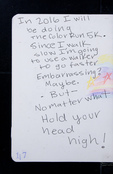 In 2016 I will
be doing
the Color Run 5K.
Since I walk
slow I'm going
to use a walker
to go faster
Embarrassing?
Maybe.
- But -
No matter what
Hold your
head
high!